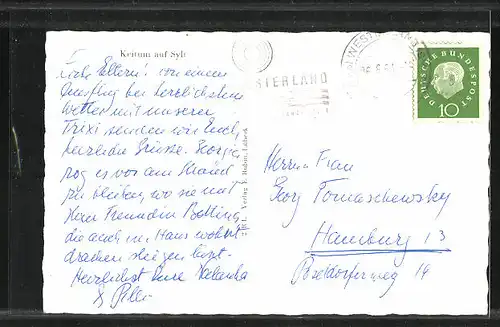 Keitum auf Sylt
Liebe Eltern! Von einem
Ausflug bei herrlichstem
Wetter mit unserer
Trixi senden wir Euch
herzliche Grüsse. Georgia
zog es vor am Strand
zu bleiben, wo sie mit
ihrer Freundin Bettina,
die auch im Haus wohnt
drachen steigen lässt.
Herzlichst Eure
Verlag F. Lübeck
WESTERLAND
STERLAND
DEUTSCHE BUNDESPOST
10
Herrn u. Frau
Georg Tomaschewsky
Hamburg 13
Pöseldorferweg 14